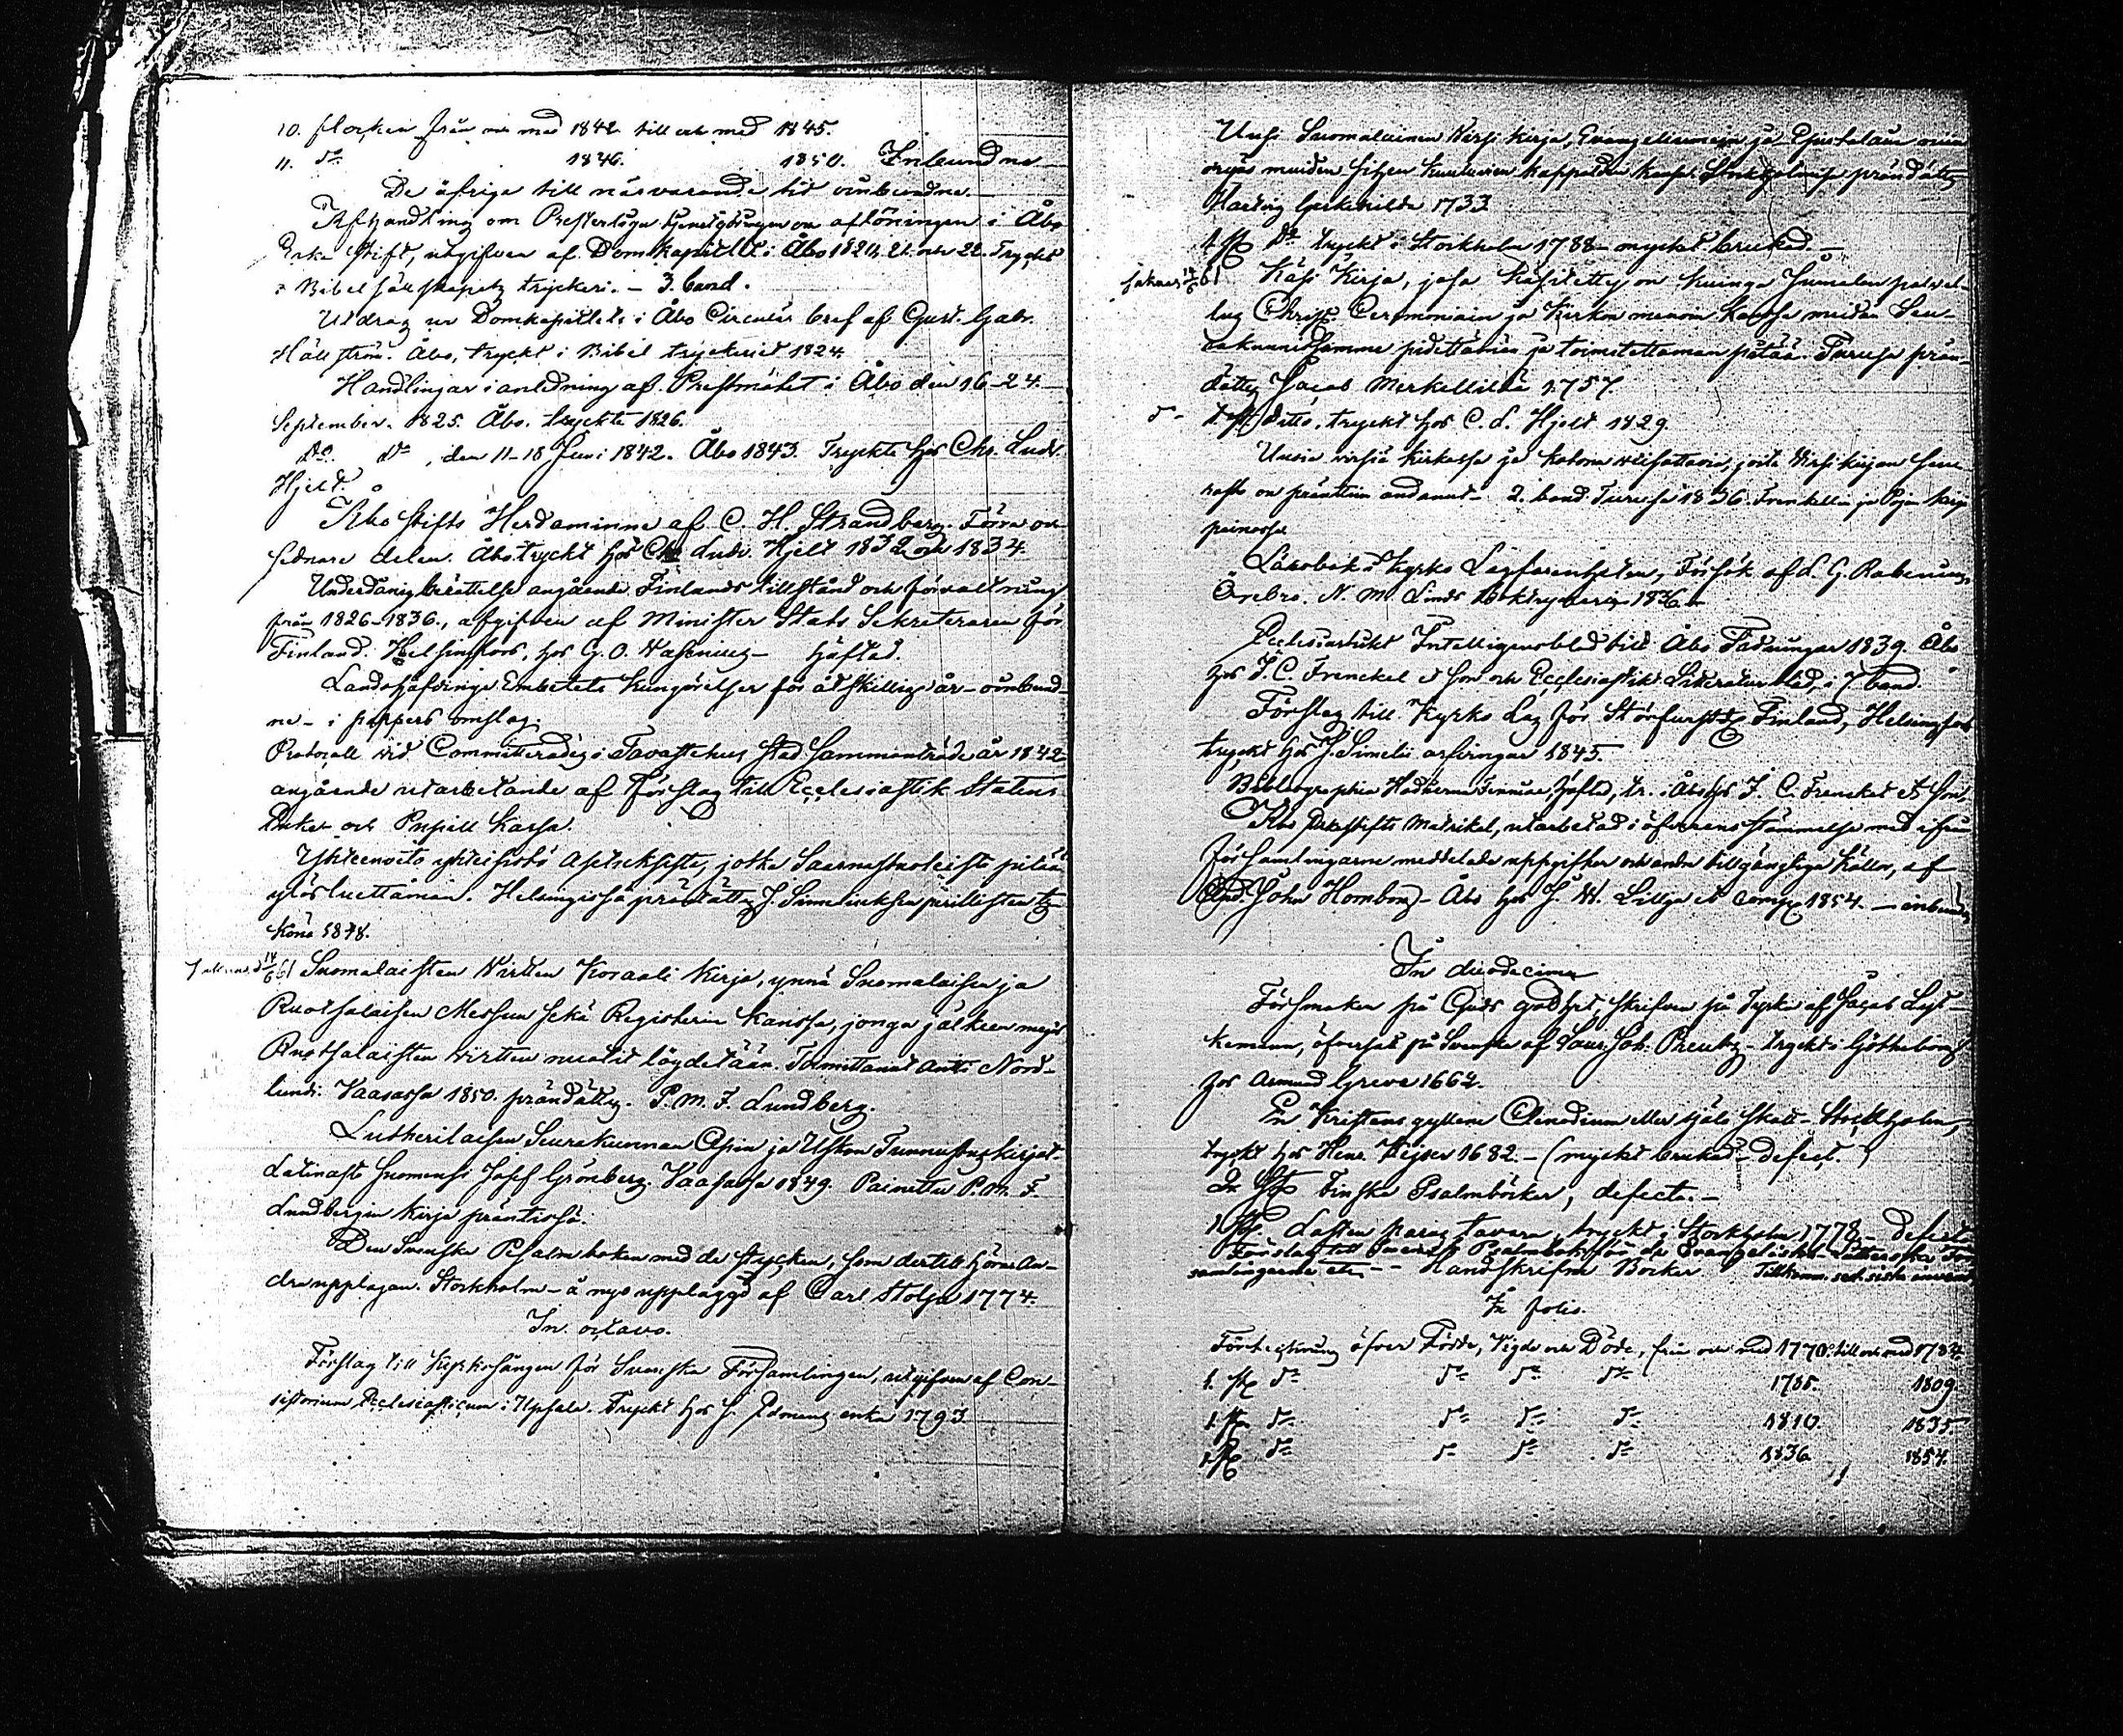 10. flocken från och med 1842 till och med 1845.
11. do 1846. 1850. Inbundna
De öfriga till närvarande tid oinbundna.
Afhandling om Presterliga tjenstgöringen och aflöningen i Åbo
Erke Stift, utgifven af Domkapitlet i Åbo 1820, 21. och 22. Tryckt
i Bibelsällskapets tryckeri. – 3. band.
Utdrag ur Domkapitlets i Åbo Circulär bref af Gust. Gabr.
Hällström. Åbo, tryckt i Bibel tryckeriet 1824.
Handlingar i anledning af Prestmötet i Åbo den 16–24.
September. 1825. Åbo. tryckte 1826.
Do. do, den 11–18 Juni 1842. Åbo 1843. Tryckte hos Chr. Ludv.
Hjelt.
Åbo Stifts Herdaminne af C. H. Strandberg. Förra och
sednare delen. Åbo tryckt hos Chr. Ludv. Hjelt 1832 och 1834.
Underdånig berättelse angående Finlands tillstånd och förvaltning
från 1826–1836., afgifven af Minister Stats Sekreteraren för
Finland. Helsingfors, hos G. O. Wasenius – häftad.
Landshöfdinge Embetets kungörelser för åtskillige år – oinbund-
ne – i pappers omslag.
Protocoll vid Committerades i Tavastehus Stad Sammanträde år 1842
angående utarbetande af Förslag till Ecclesiastik Statens
Enke- och Pupill Kassa.
Yhteenveto yhteisistä Asetuksista, jotka Saarnastuoleista pitää
ylösluettaman. Helsingissä präntätty J. Simeliuksen perillisten ty-
könä
14/6 61 Suomalaisten Virtten Koraali Kirja, ynnä Suomalaisen ja
Ruotsalaisen Messun sekä Registerin kanssa, jonga jälkeen myös
Ruotsalaisten virtten nuotit löydetään. Toimittanut Antti Nord-
lund. Vaasassa 1850. prändätty. P. M. F. Lundberg.
Lutherilaisen Seurakunnan Opin ja Uskon Tunnustuskirjat.
Latinasta Suomensi Josef Grönberg. Vaasassa 1849. Painettu P. M. F.
Lundbergin kirja präntissä.
Den Svenska Psalmboken med de stycken, som dertill höra. An-
dra upplagan. Stockholm – å nyo upplaggd af Carl Stolpe 1774.
In octavo.
Förslag till Kyrkosången för Svenska Församlingen, utgifven af Con-
sistorium Ecclesiasticum i Upsala. Tryckt hos J. Edmans enka 1793
Uusi Suomalainen Virsi Kirja, Evangeliumein ja Epistolain
muiden siihen kuuluvien kappalden kansa. Stockholmisa prändätty
Hartvig Gerkenilda 1733
1. st. do tryckt i Stockholm 1788 – mycket brukad. –
Saknas 14/6 61 Käsi Kirja, josa käsitetty on kuinga Jumalan palvel-
lus Christ. Ceremoniain ja Kirkon menoin kansa meidän Seu-
rakunnisamme pidettämän ja toimitettaman pitää. Turusa prän-
dätty Jacob Merkellildä 1757.
do 1. st. ditto, tryckt hos C. L. Hjelt 1829.
Uusia virsiä kirkossa ja kotona veisattavia, joita Virsikirjan
on präntiin andanut. 2. band. Turusa 1836. Frenkellin ja Pojan kirja
painossa.
Lärobok i Kyrko Lagfarenheten, Försök af L. G. Rabenius,
Örebro. N. M. Lindhs Boktryckeri 1836.
Ecclesiastikt Intelligensblad till Åbo Tidningar 1839. Åbo
hos J. C. Frenckel & Son och Ecclesiastikt Literaturblad, i 7. band.
Förslag till Kyrko Lag för Storfurstd. Finland, Helsingfors
tryckt hos J. Simelii arfvingar 1845.
Bibliographia Hodierna Fenniae, häftad, tr. i Åbo hos J. C. Frenckel & Son.
Åbo Erkestifts Matrikel, utarbetad i öfverensstämmelse med ifrån
församlingarne meddelade uppgifter och andra tillgängliga källor, af
John Homborg – Åbo hos J. W. Lillja & Comp. 1854. – inbunden
In duodecimo
Försmaken på Guds godhet, skrifven på Tyska af Jacob
öfversatt på Svenska af Laur. Joh. – tryckt i Götheborg
hos Amund Grewe 1662.
En Kristens gyllene Clenodium eller själs skatt – Stockholm,
tryckt hos Henr. Keyser 1682. – (mycket brukad – defect.)
2 st. Finska Psalmböcker, defecta. –
1 st. Lasten paras tavara, tryckt i Stockholm 1778 – defect
Förslag till Svensk Psalmbok för de Evangeliska Lutherska För-
samlingarne etc – – Handskrifna Böcker. Tillkomm. sed. sista invent.
In folio.
Förteckning öfver Födde, Vigde och Döde, från och med 1770. till och med 1784.
1. st do do do do 1785. 1809.
1. st do do do do 1810. 1835.
1. st do do do do 1836 1854.